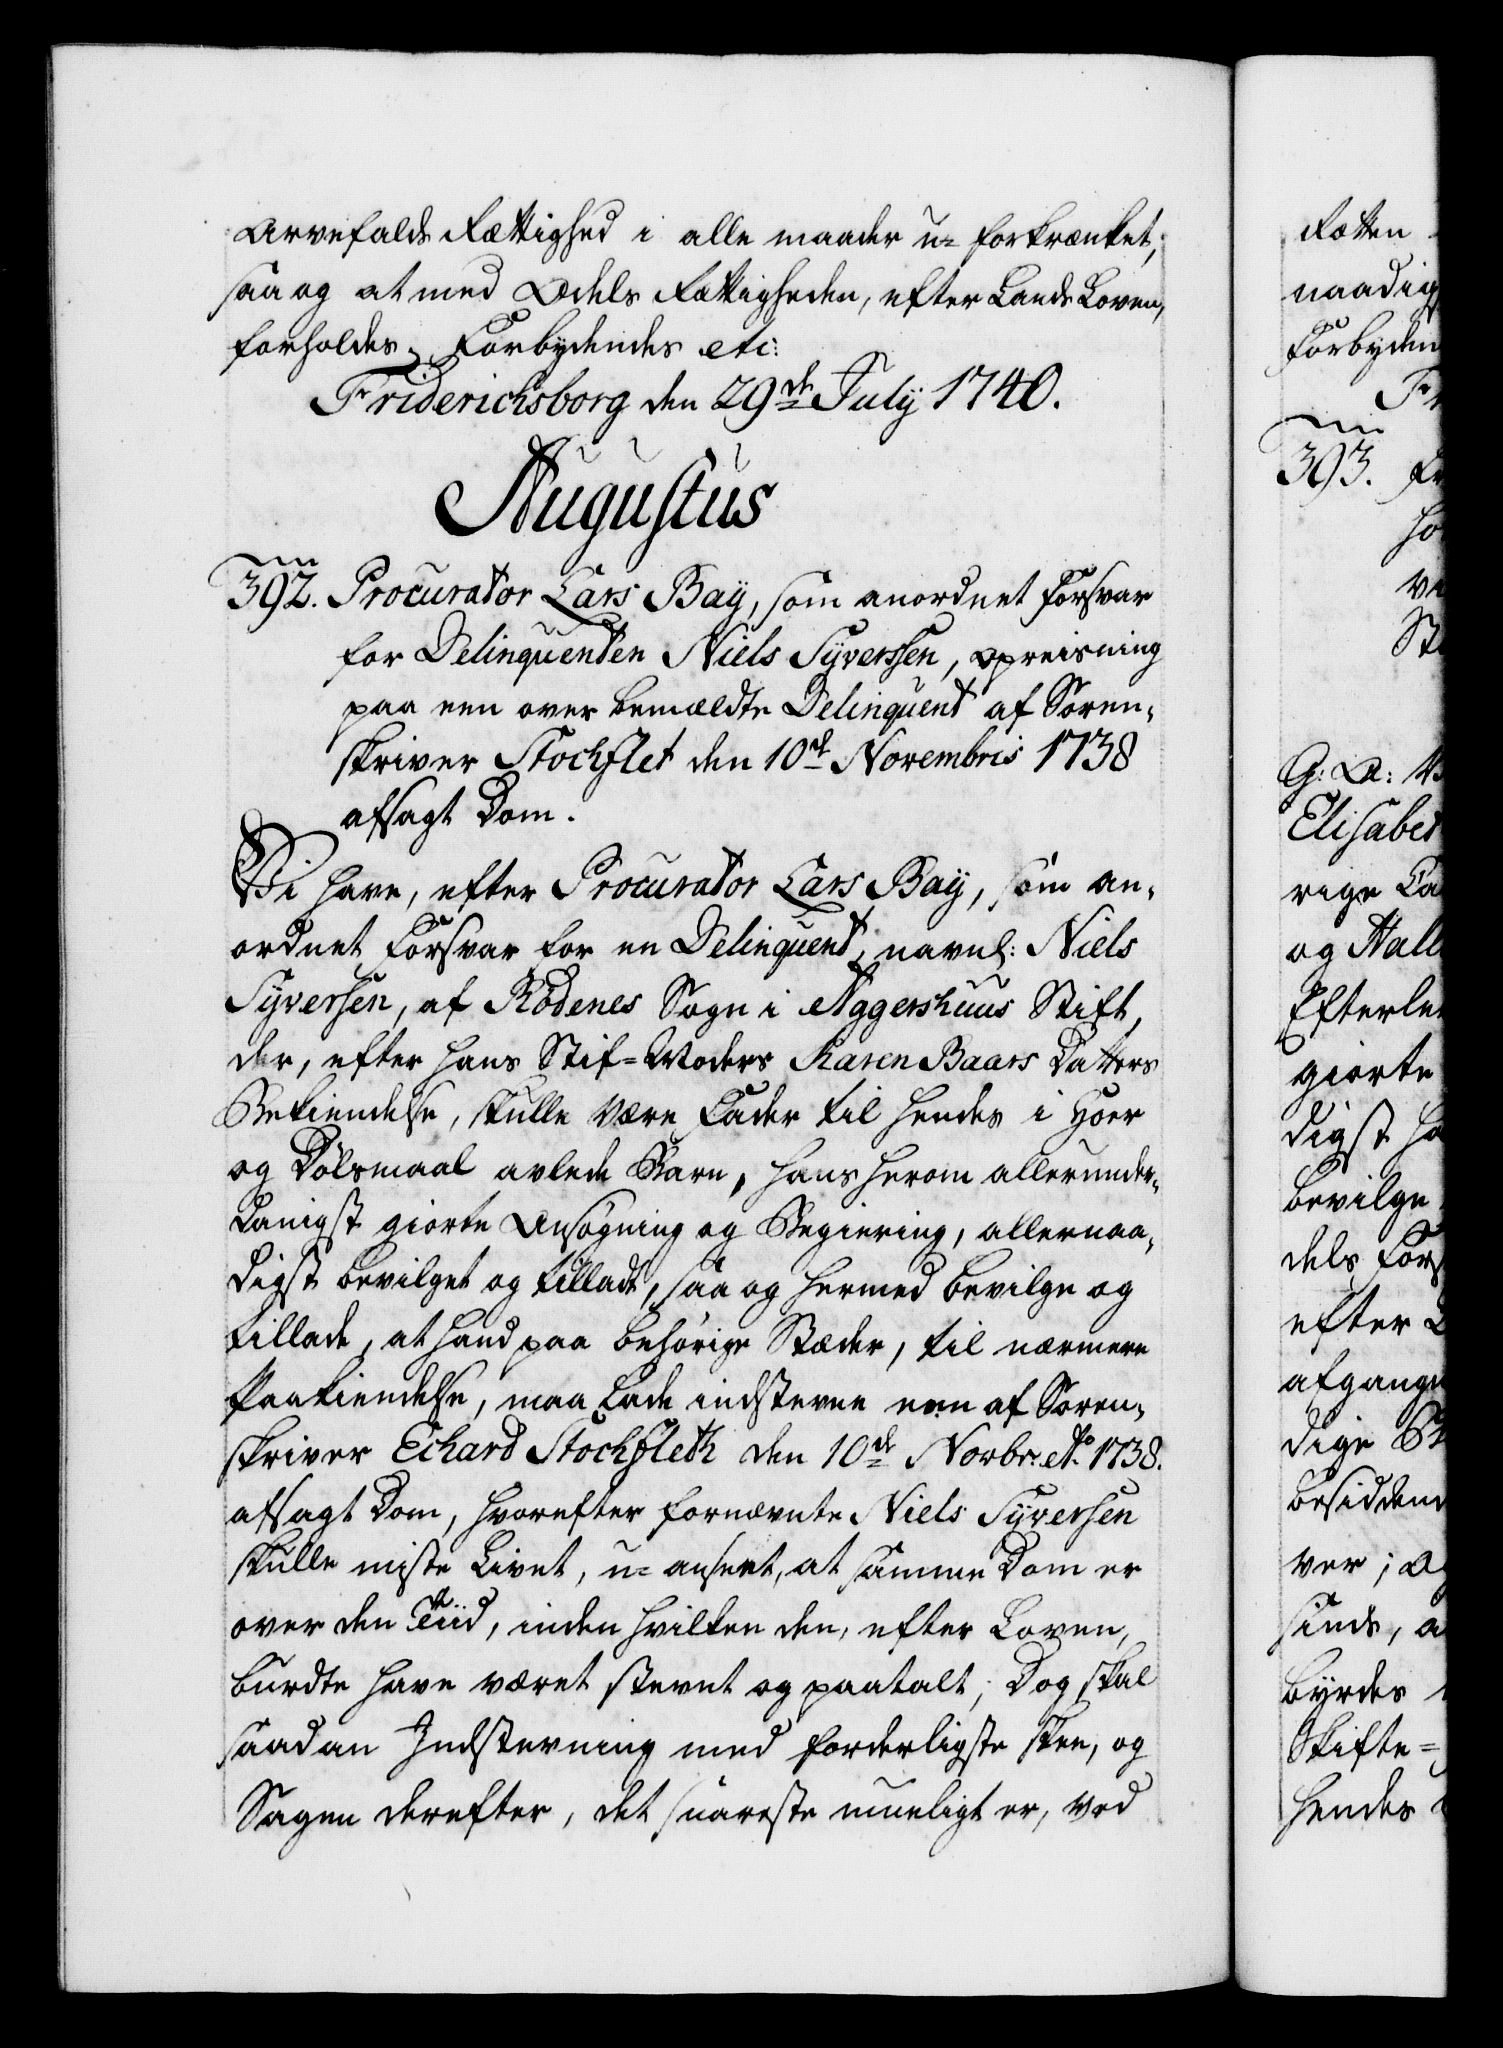 Arvefalds Rættighed i alle maader u= forkrænket,
saa og at med Odels Rættigheden, efter Lands Loven,
forholdes. Forbydendes etc:
Friderichsborg den 29de July 1740.
Augustus
392. Procurator Lars Baÿ, som anordnet Forsvar
for Delinquenten Niels Sÿverssen, opreisning
paa een over bemældte Delinquent af Soren-
skriver Stochflet den 10de Novembris 1738
afsagt Dom.
Vi have, efter Procurator Lars Baÿ, som an-
ordnet Forsvar for en Delinquent, navnl: Niels
Sÿversen, af Rødenes Sogn i Aggershuus Stift,
der, efter hans Stif=Moders Karen Baars Datters
Bekiendelse, skulle være Fader til hendes i Hoer
og Dølsmaal avlede Barn, hans herom allerunder-
danigst giorte Ansøgning og Begiering, allernaa-
digst bevilget og tilladt, saa og hermed bevilge og
tillade, at hand paa behørige Stæder, til nærmere
Paakiendelse, maa lade indstevne een af Soren-
skriver Echard Stochfleth den 10de Novbr: Ao 1738.
afsagt Dom, hvorefter fornævnte Niels Sÿversen
skulle miste Livet, u= anseet, at samme Dom er
over den Tiid, inden hvilken den, efter Loven,
burdte have været stevnt og paatalt; Dog skal
saadan Indstevning med forderligste skee, og
Sagen derefter, det snareste mueligt er, ved
Rætten
naadig
Forbyden
Fr
393.
Fr
ho
ve
St
G: A: V
Elisabet
rige La
og Hall
Efterle
giorte
digst ha
bevilge
dels For
efter L
afgange
dige
besidden
ver; Og
sinds, a
byrdes
Skifte=
hendes